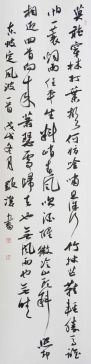 莫聽穿林打葉聲何妨吟嘯且徐行竹杖芒鞋輕勝馬誰
怕一蓑煙雨任平生料峭春風吹酒醒微冷山頭斜照却
相迎回首向來蕭瑟處歸去也無風雨也無晴
東坡定風波一首戊戌冬月書